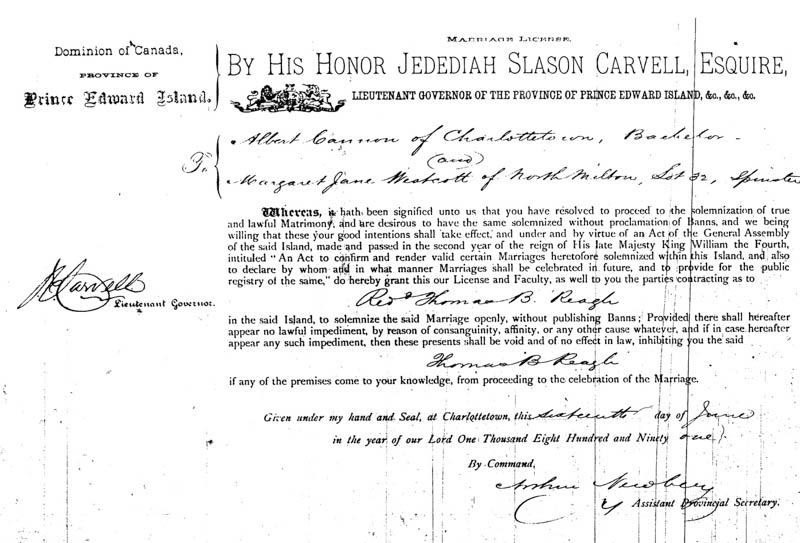 MARRIAGE LICENSE.
Dominion of Canada,
PROVINCE OF
Prince Edward Island.
BY HIS HONOR JEDEDIAH SLASON CARVELL, ESQUIRE,
LIEUTENANT GOVERNOR OF THE PROVINCE OF PRINCE EDWARD ISLAND, &c., &c., &c.
To
Albert Cannon of Charlottetown, Bachelor
(and)
Margaret Jane Westcott of North Milton, Lot 32, Spinster
Whereas, it hath been signified unto us that you have resolved to proceed to the solemnization of true
and lawful Matrimony, and are desirous to have the same solemnized without proclamation of Banns, and we being
willing that these your good intentions shall take effect, and under and by virtue of an Act of the General Assembly
of the said Island, made and passed in the second year of the reign of His late Majesty King William the Fourth,
intituled "An Act to confirm and render valid certain Marriages heretofore solemnized within this Island, and also
to declare by whom and in what manner Marriages shall be celebrated in future, and to provide for the public
registry of the same," do hereby grant this our License and Faculty, as well to you the parties contracting as to
Revd Thomas B. Reagh
in the said Island, to solemnize the said Marriage openly, without publishing Banns; Provided there shall hereafter
appear no lawful impediment, by reason of consanguinity, affinity, or any other cause whatever, and if in case hereafter
appear any such impediment, then these presents shall be void and of no effect in law, inhibiting you the said
Thomas B Reagh
if any of the premises come to your knowledge, from proceeding to the celebration of the Marriage.
Carvell
Lieutenant Governor.
Given under my hand and Seal, at Charlottetown, this sixteenth day of June
in the year of our Lord One Thousand Eight Hundred and Ninety one.
By Command,
Arthur Newbery
Assistant Provincial Secretary.